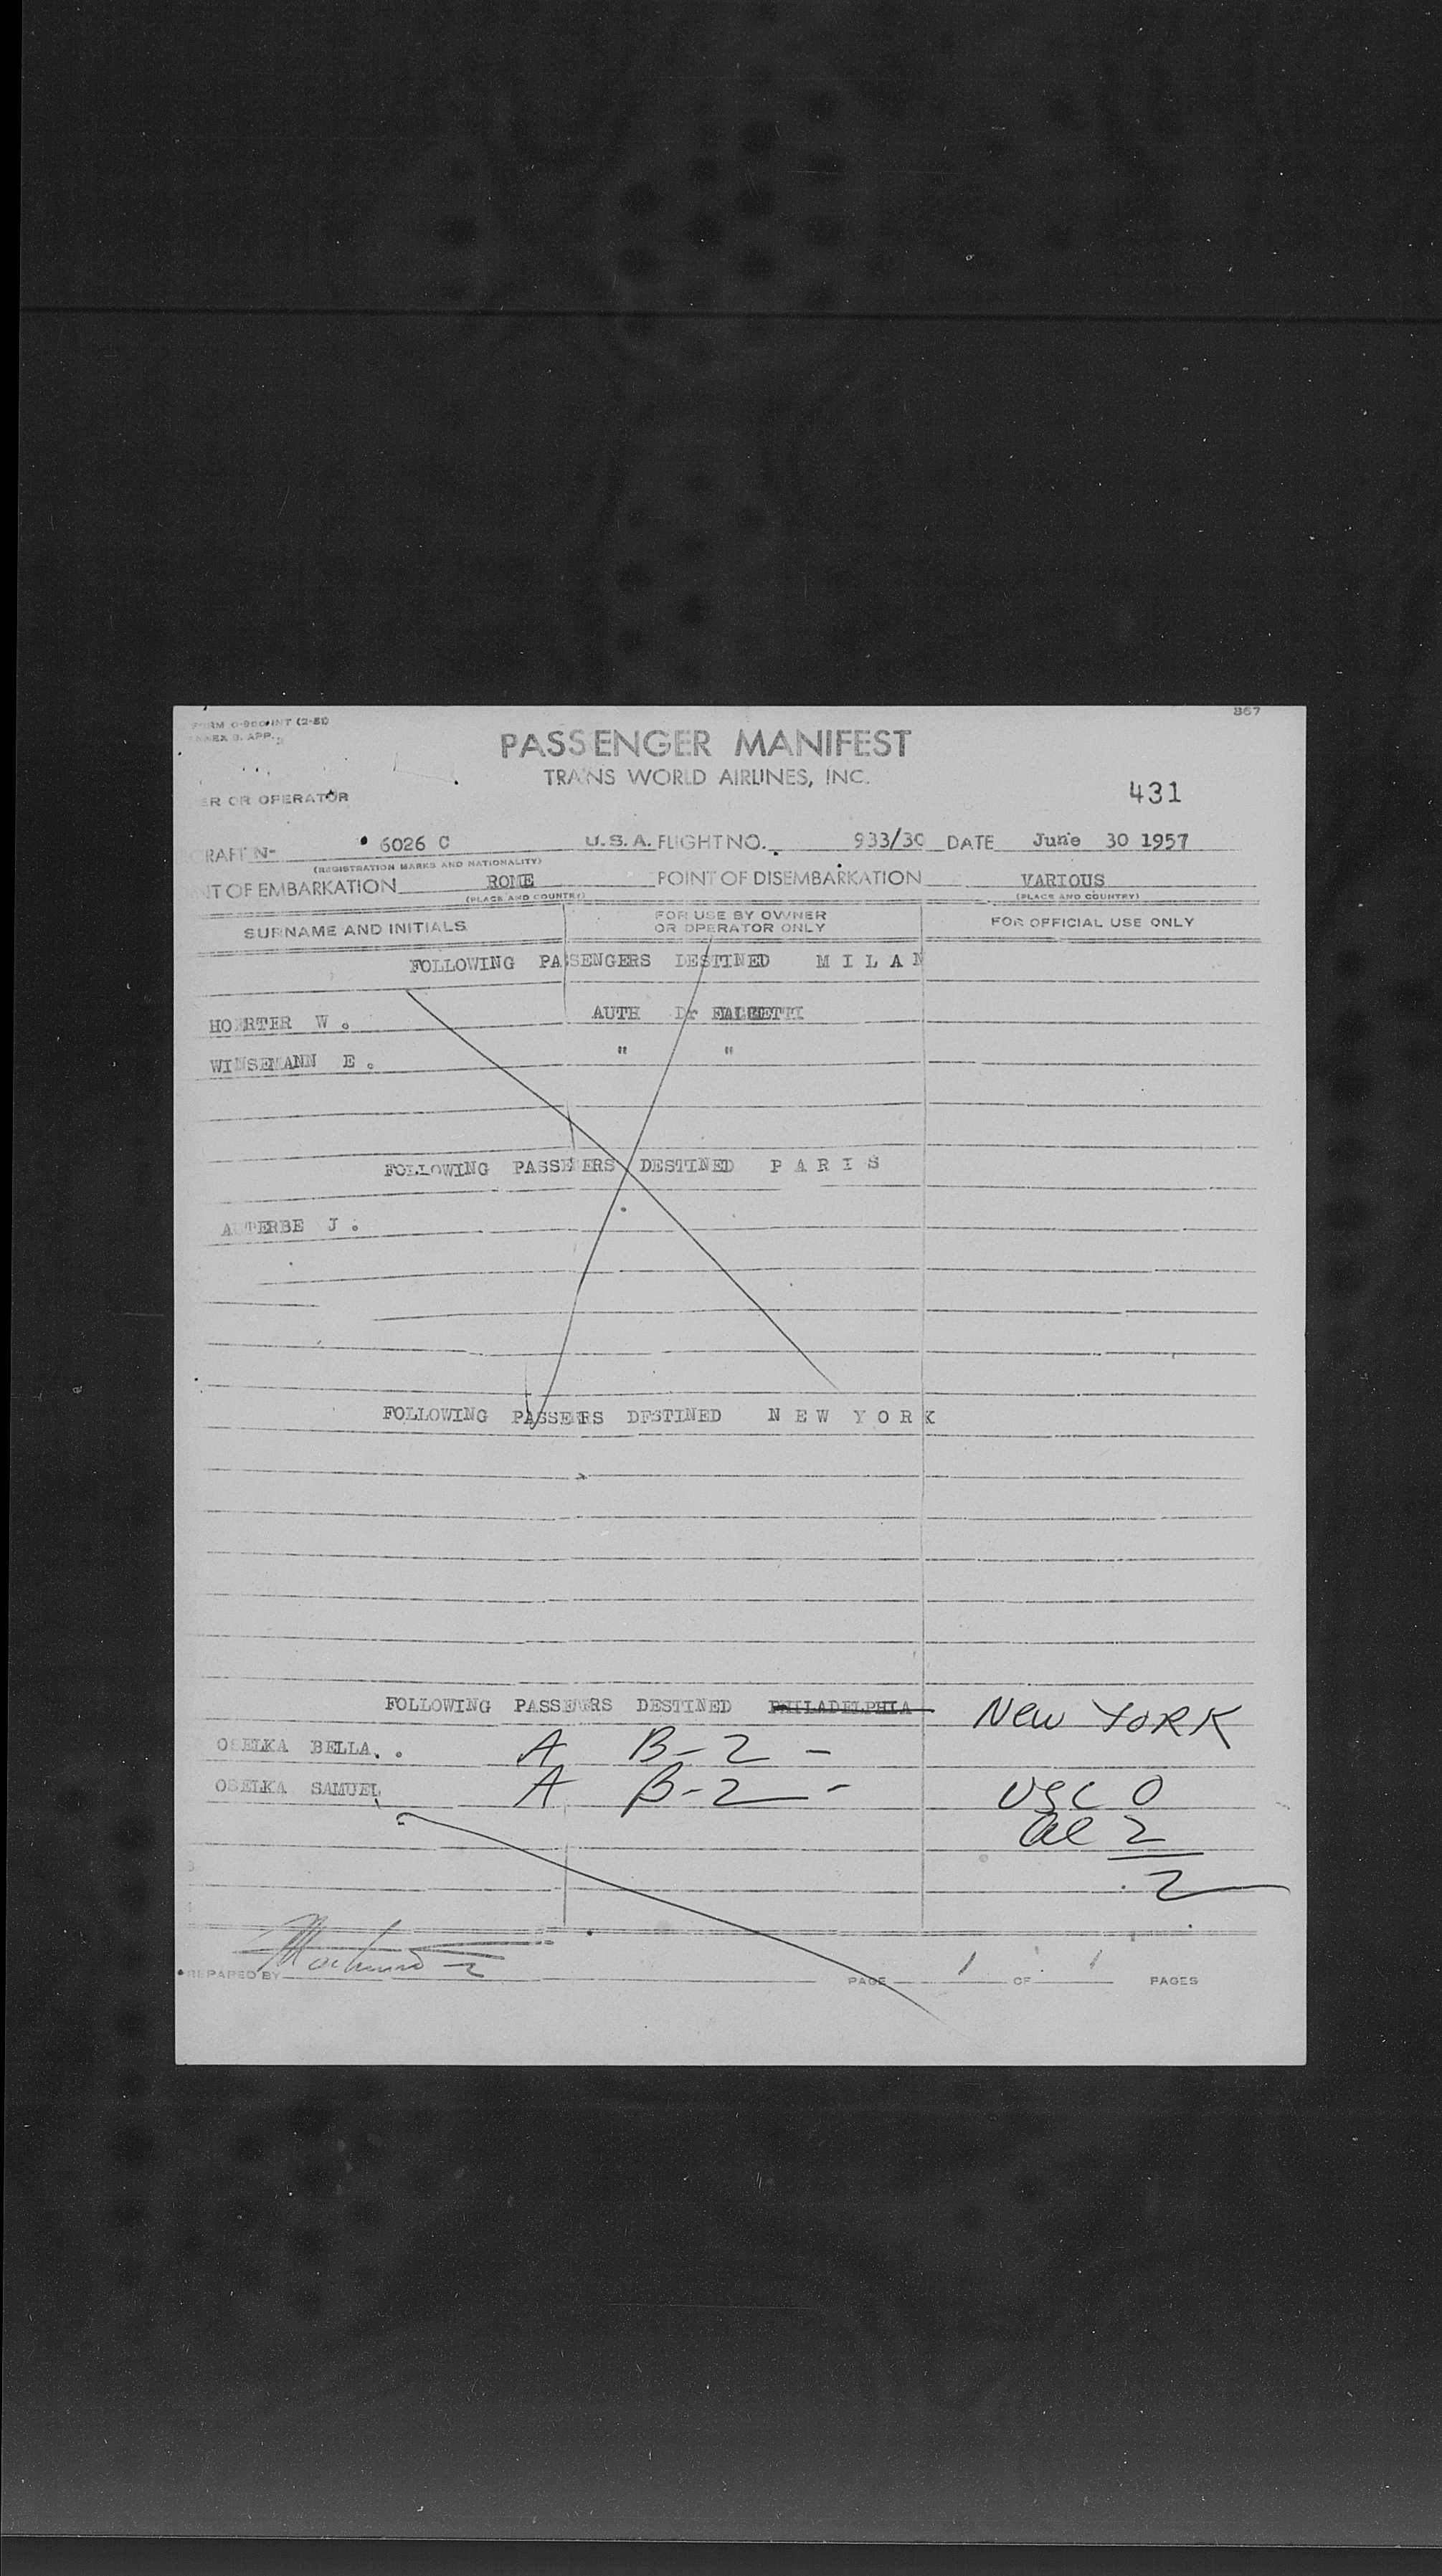 867
FORM O-980-INT (2-51)
ANNEX 9. APP. 3
PASSENGER MANIFEST
TRANS WORLD AIRLINES, INC.
431
ER OR OPERATOR
CRAFT N- 6026 C U.S.A. FLIGHT NO. 933/30 DATE June 30 1957
(REGISTRATION MARKS AND NATIONALITY)
NT OF EMBARKATION ROME POINT OF DISEMBARKATION VARIOUS
(PLACE AND COUNTRY) (PLACE AND COUNTRY)
SURNAME AND INITIALS FOR USE BY OWNER OR OPERATOR ONLY FOR OFFICIAL USE ONLY
FOLLOWING PASSENGERS DESTINED M I L A N
HOERTER W. AUTH Dr
WINSEMANN E. " "
FOLLOWING PASSEGERS DESTINED P A R I S
AUTERBE J.
FOLLOWING PASSEERS DESTINED N E W Y O R K
FOLLOWING PASSEERS DESTINED PHILADELPHIA New YORK
OSELKA BELLA. A B-2 -
OSELKA SAMUEL A B-2 - USC 0
al 2
2
PREPARED BY PAGE 1 OF 1 PAGES